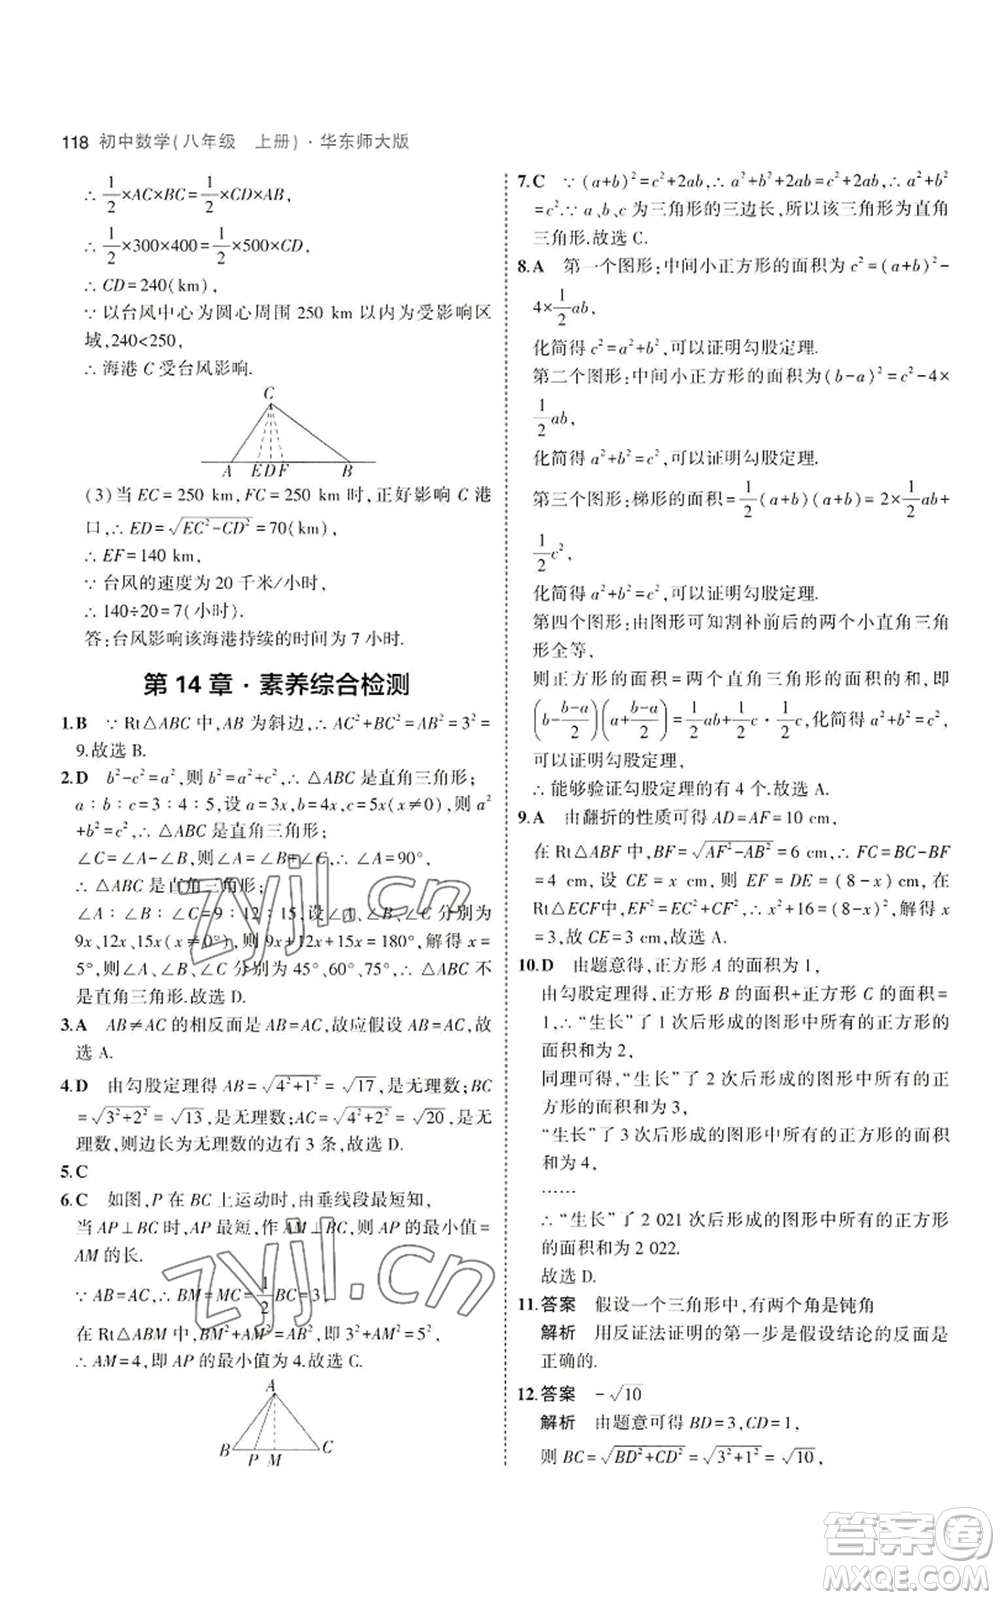 118 初中数学(八年级 上册)·华东师大版
∴ 1/2×AC×BC=1/2×CD×AB,
∴ 1/2×300×400=1/2×500×CD,
∴ CD=240(km),
∵ 以台风中心为圆心周围 250 km 以内为受影响区
域,240<250,
∴ 海港 C 受台风影响.
C
A E D F B
(3)当 EC=250 km,FC=250 km 时,正好影响 C 港
口,∴ ED=√(EC²-CD²)=70(km),
∴ EF=140 km,
∵ 台风的速度为 20 千米/小时,
∴ 140÷20=7(小时).
答:台风影响该海港持续的时间为 7 小时.
第 14 章·素养综合检测
1.B ∵ Rt△ABC 中,AB 为斜边,∴ AC²+BC²=AB²=3²=
9.故选 B.
2.D b²-c²=a²,则 b²=a²+c²,∴ △ABC 是直角三角形;
a∶b∶c=3∶4∶5,设 a=3x,b=4x,c=5x(x≠0),则 a²
+b²=c²,∴ △ABC 是直角三角形;
∠C=∠A-∠B,则∠A=∠B+∠C,∴ ∠A=90°,
∴ △ABC 是直角三角形;
∠A∶∠B∶∠C=9∶12∶15,设∠A、∠B、∠C 分别为
9x、12x、15x(x≠0),则 9x+12x+15x=180°,解得 x=
5°,则∠A、∠B、∠C 分别为 45°,60°,75°,△ABC 不
是直角三角形.故选 D.
3.A AB≠AC 的相反面是 AB=AC,故应假设 AB=AC,故
选 A.
4.D 由勾股定理得 AB=√(4²+1²)=√17,是无理数;BC
=√(3²+2²)=√13,是无理数;AC=√(4²+2²)=√20,是无
理数,则边长为无理数的边有 3 条,故选 D.
5.C
6.C 如图,P 在 BC 上运动时,由垂线段最短知,
当 AP⊥BC 时,AP 最短,作 AM⊥BC,则 AP 的最小值=
AM 的长.
∵ AB=AC,∴ BM=MC=1/2BC=3,
在 Rt△ABM 中,AM²=AB²-BM²,即 3²+AM²=5²,
∴ AM=4,即 AP 的最小值为 4.故选 C.
A
B P M C
7.C ∵ (a+b)²=c²+2ab,∴ a²+b²+2ab=c²+2ab,∴ a²+b²
=c².∵ a、b、c 为三角形的三边长,所以该三角形为直角
三角形.故选 C.
8.A 第一个图形:中间小正方形的面积为 c²=(a+b)²-
4×1/2ab,
化简得 c²=a²+b²,可以证明勾股定理.
第二个图形:中间小正方形的面积为(b-a)²=c²-4×
1/2ab,
化简得 a²+b²=c²,可以证明勾股定理.
第三个图形:梯形的面积=1/2(a+b)(a+b)=2×1/2ab+
1/2c²,
化简得 a²+b²=c²,可以证明勾股定理.
第四个图形:由图形可知割补前后的两个小直角三角
形全等,
则正方形的面积=两个直角三角形的面积的和,即
(b-(b-a)/2)(a+(b-a)/2)=1/2ab+1/2c·1/2c,化简得 a²+b²=c²,
可以证明勾股定理.
∴ 能够验证勾股定理的有 4 个.故选 A.
9.A 由翻折的性质可得 AD=AF=10 cm,
在 Rt△ABF 中,BF=√(AF²-AB²)=6 cm,∴ FC=BC-BF
=4 cm,设 CE=x cm,则 EF=DE=(8-x) cm,在
Rt△ECF中,EF²=EC²+FC²,∴ x²+16=(8-x)²,解得 x
=3,故 CE=3 cm,故选 A.
10.D 由题意得,正方形 A 的面积为 1,
由勾股定理得,正方形 B 的面积+正方形 C 的面积=
1,∴ “生长”了 1 次后形成的图形中所有的正方形的
面积和为 2,
同理可得,“生长”了 2 次后形成的图形中所有的正
方形的面积和为 3,
“生长”了 3 次后形成的图形中所有的正方形的面积
和为 4,
……
∴ “生长”了 2 021 次后形成的图形中所有的正方形
的面积和为 2 022.
故选 D.
11.答案 假设一个三角形中,有两个角是钝角
解析 用反证法证明的第一步是假设结论的反面是
正确的.
12.答案 -√10
解析 由题意可得 BD=3,CD=1,
则 BC=√(BD²+CD²)=√(3²+1²)=√10,
zyjl.cn
zyjl.cn
答案卷
MXQE.COM